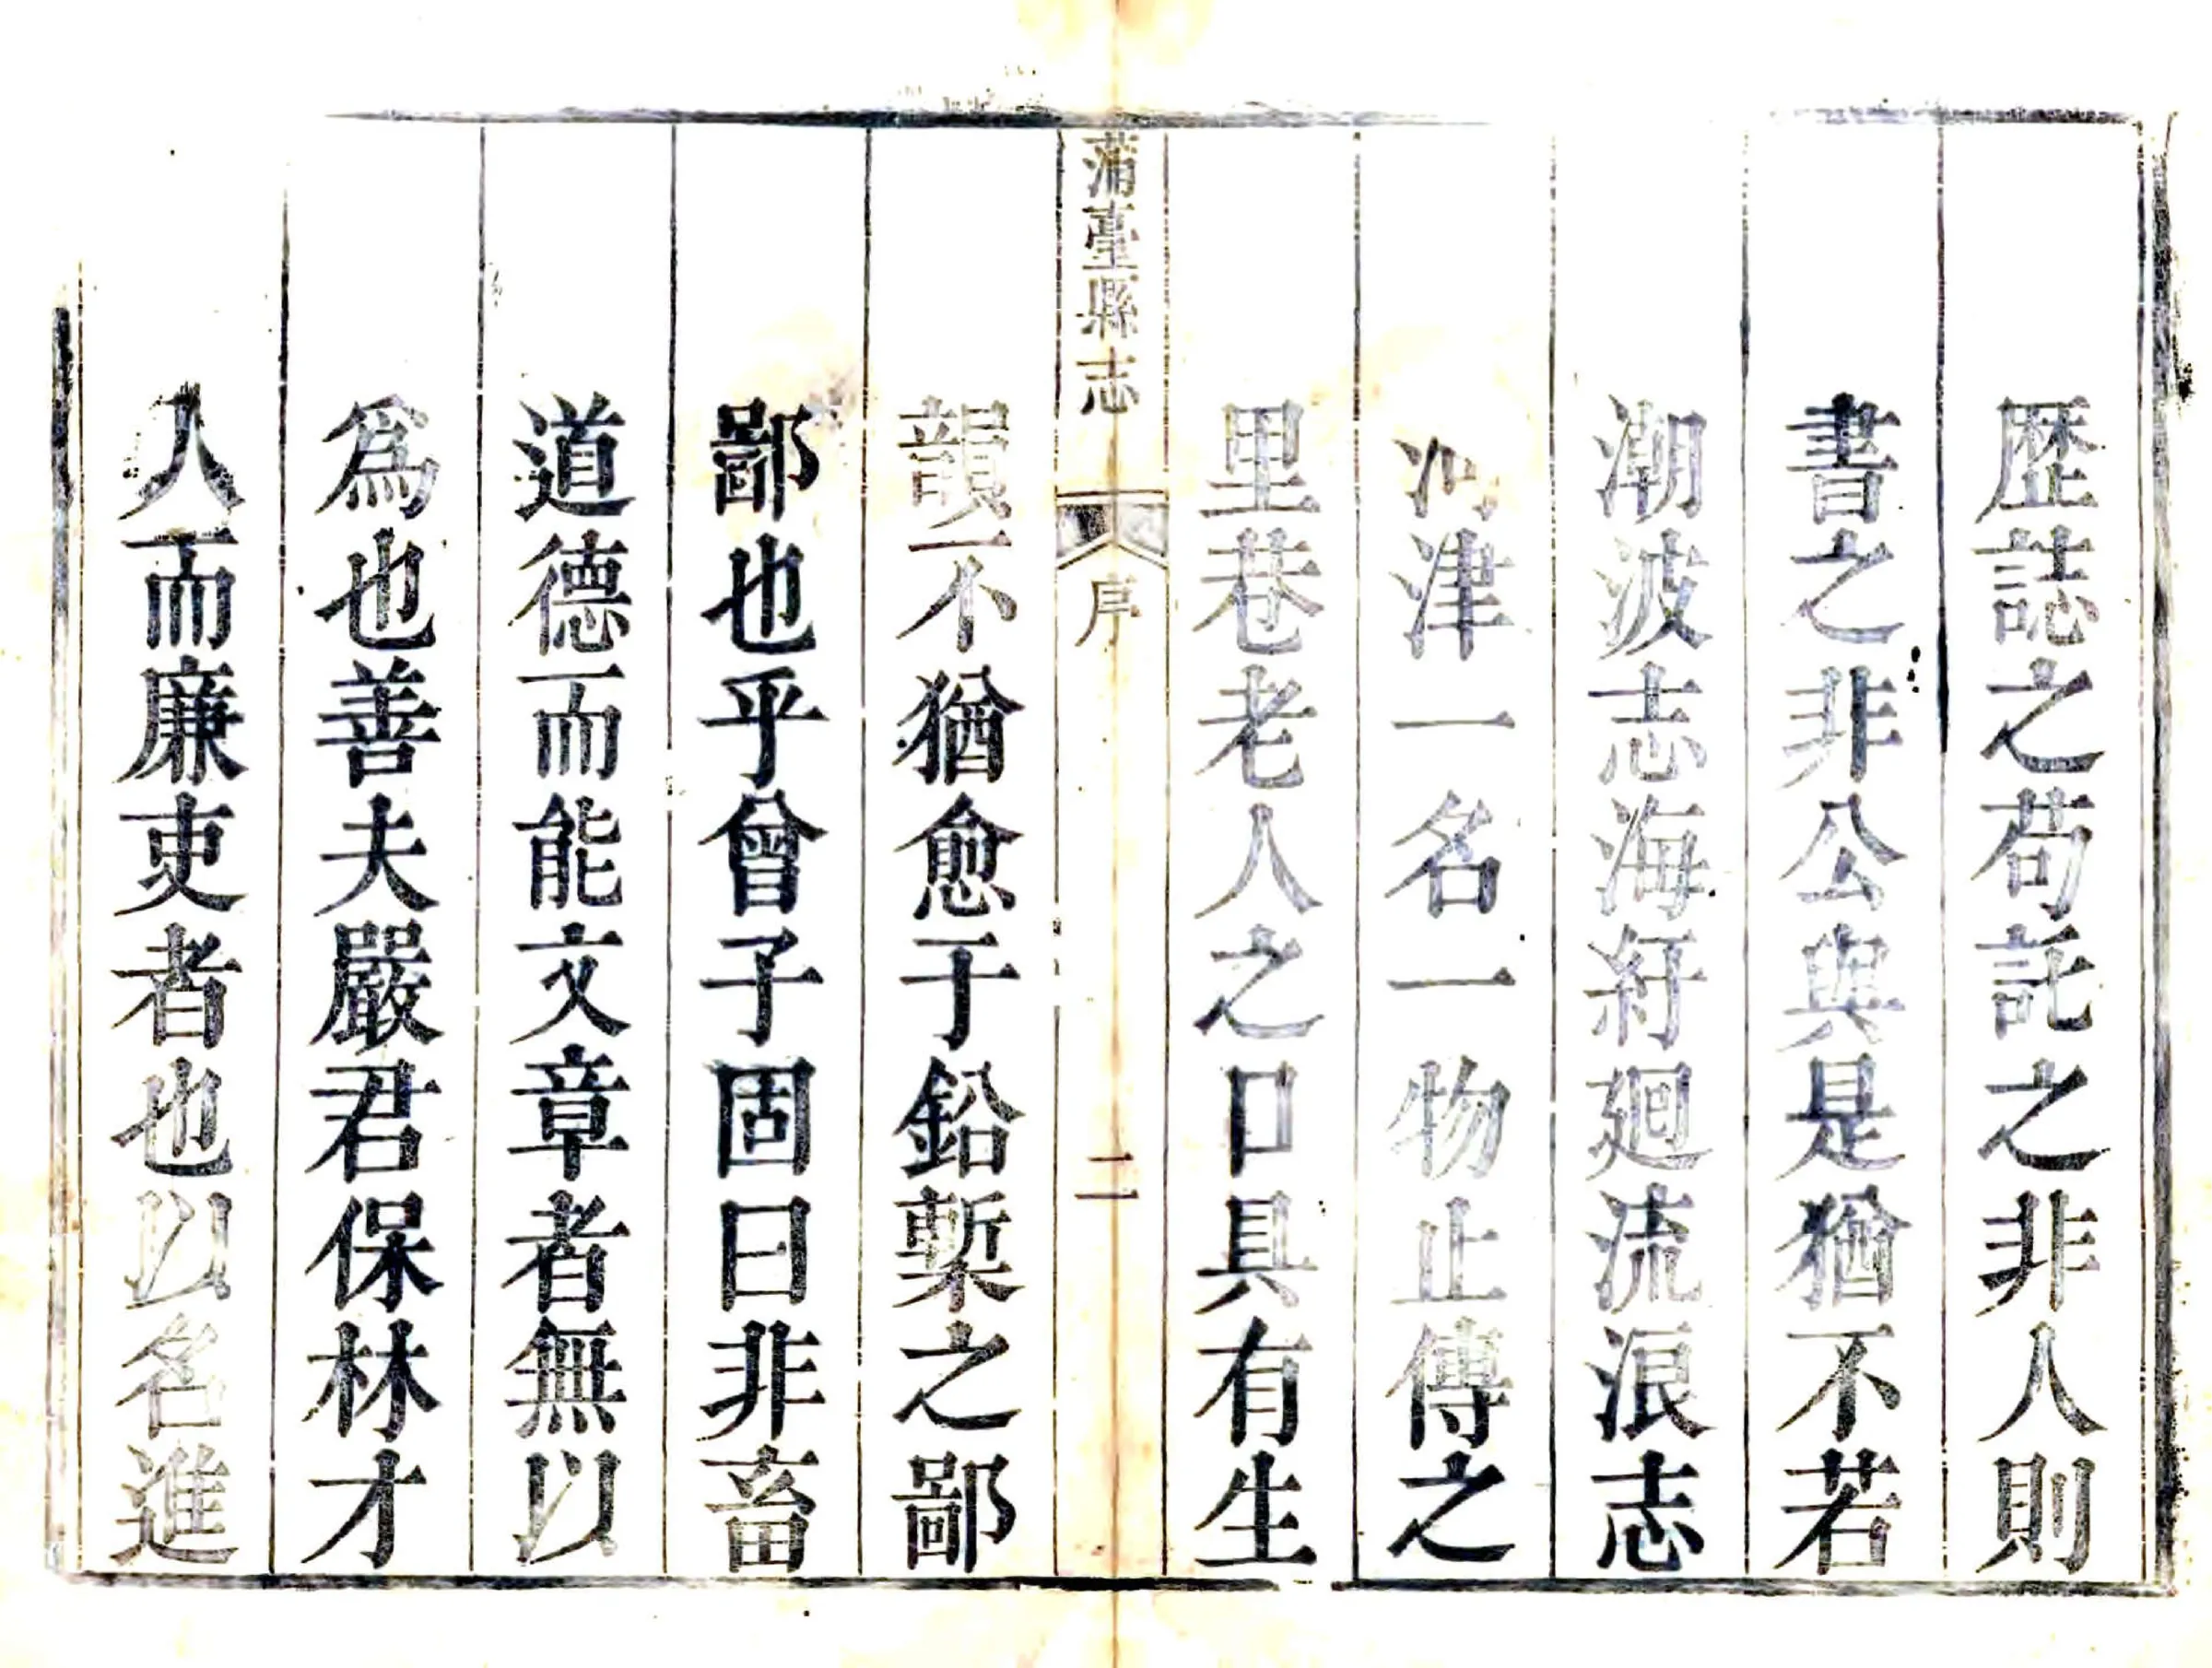 歴誌之苟託之非人則
書之非公與是猶不若
潮波志海紆廻流浪志
河津一名一物止傳之
里巷老人之口具有生
蒲臺縣志
序
二
韻不猶愈于鉛槧之鄙
鄙也乎曾子固曰非畜
道德而能文章者無以
爲也善夫嚴君保林才
人而廉吏者也以名進